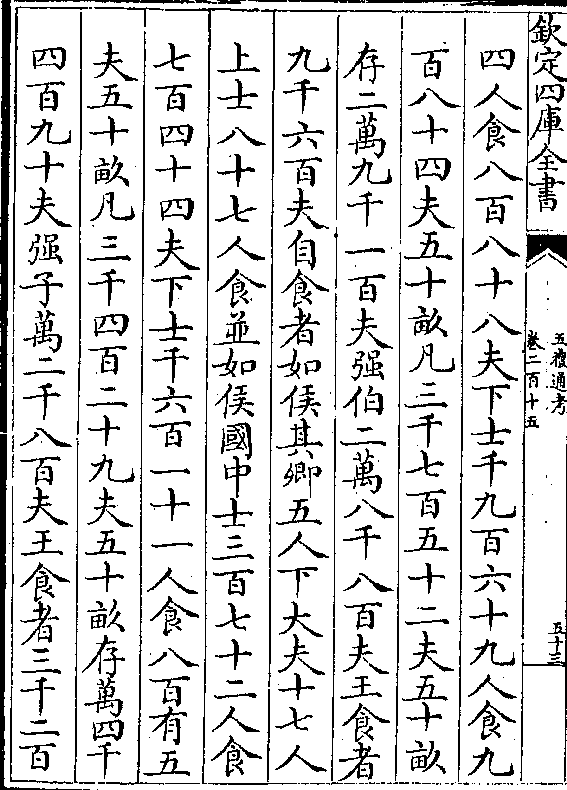 欽定四庫全書
五禮通考
卷二百十五
五十三
四人食八百八十八夫下士千九百六十九人食九
百八十四夫五十畝凡三千七百五十二夫五十畝
存二萬九千一百夫强伯二萬八千八百夫王食者
九千六百夫自食者如侯其卿五人下大夫十七人
上士八十七人食並如侯國中士三百七十二人食
七百四十四夫下士千六百一十一人食八百有五
夫五十畝凡三千四百二十九夫五十畝存萬四千
四百九十夫强子萬二千八百夫王食者三千二百